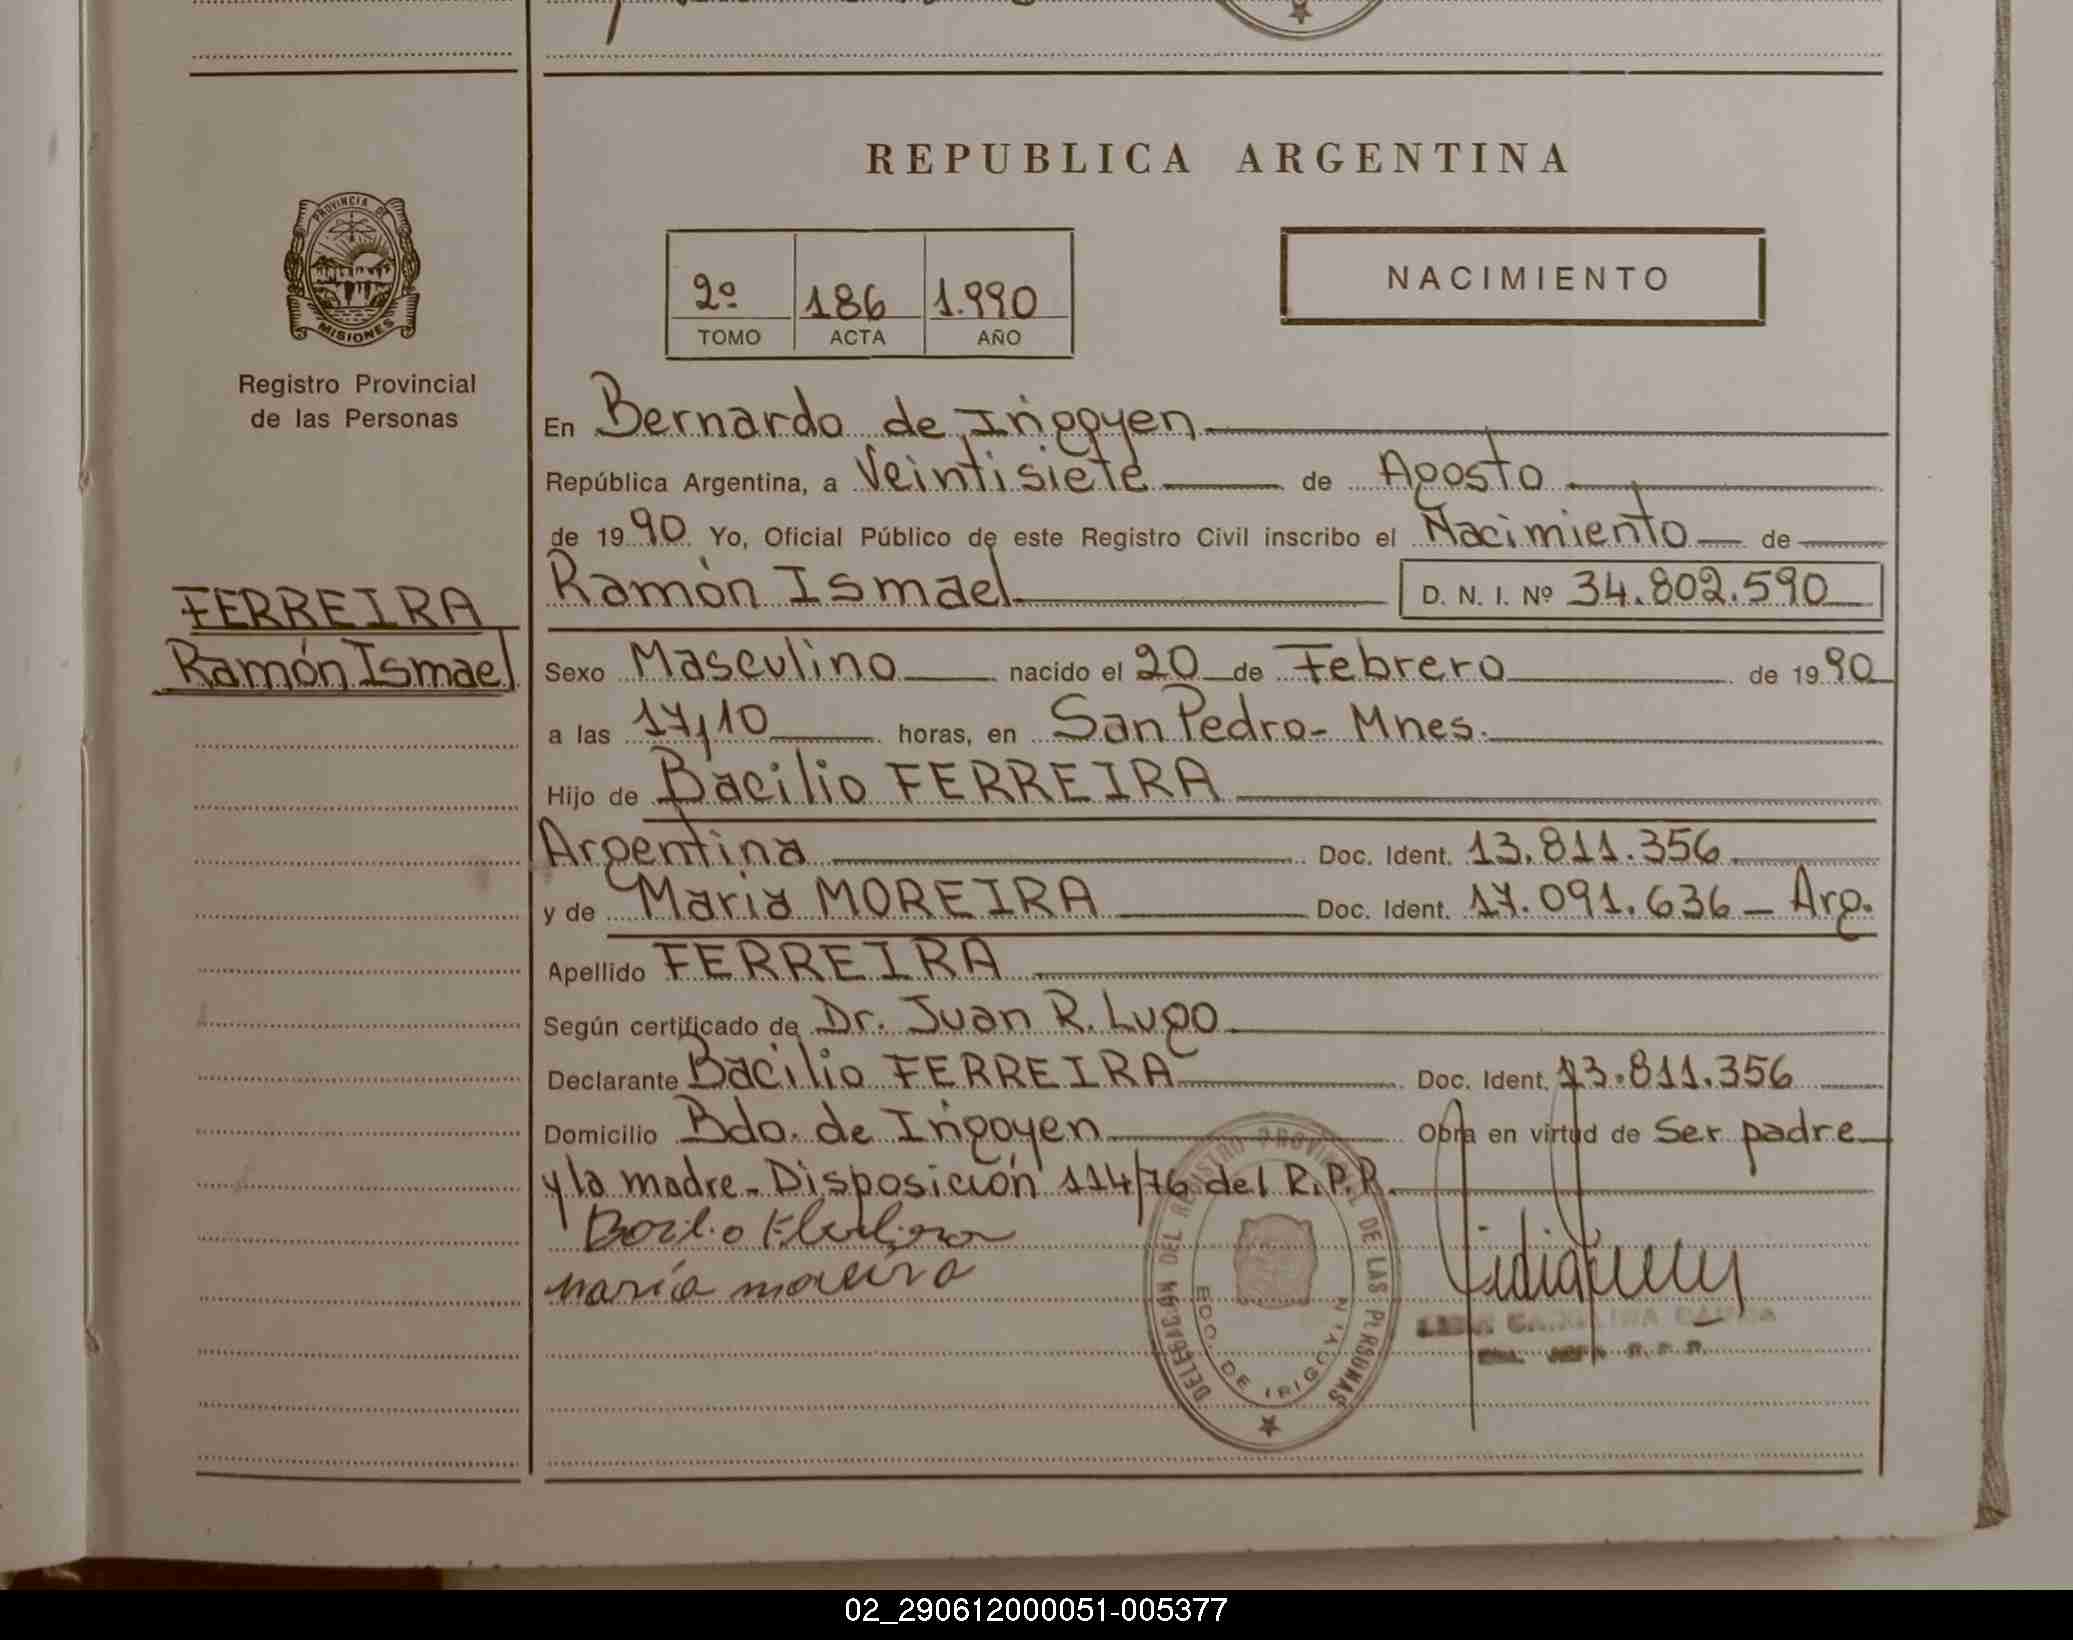 REPUBLICA ARGENTINA
PROVINCIA DE
MISIONES
Registro Provincial
de las Personas
2º 186 1.990
TOMO ACTA AÑO
NACIMIENTO
En Bernardo de Irigoyen
República Argentina, a Veintisiete de Agosto
de 1990 Yo, Oficial Público de este Registro Civil inscribo el Nacimiento de
Ramón Ismael D. N. I. Nº 34.802.590
FERREIRA
Ramón Ismael
Sexo Masculino nacido el 20 de Febrero de 1990
a las 17,10 horas, en San Pedro - Mnes.
Hijo de Bacilio FERREIRA
Argentina Doc. Ident. 13.811.356
y de Maria MOREIRA Doc. Ident. 17.091.636 - Arg.
Apellido FERREIRA
Según certificado de Dr. Juan R. Lugo
Declarante Bacilio FERREIRA Doc. Ident. 13.811.356
Domicilio Bdo. de Irigoyen Obra en virtud de Ser padre
y la madre - Disposición 114/76 del R.P.P.
maría moreira
DELEGACIÓN DEL REGISTRO PROVINCIAL DE LAS PERSONAS
BDO. DE IRIGOYEN
R.P.P.
02_290612000051-005377